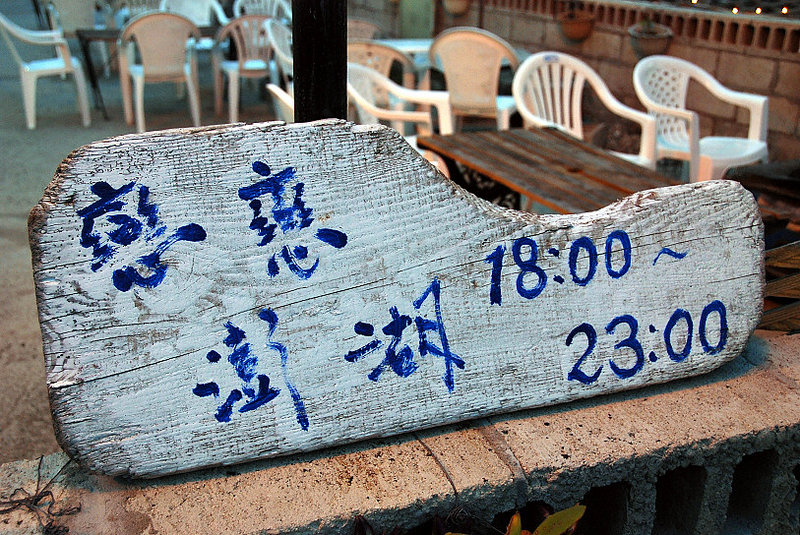 澎湖
18:00~
23:00